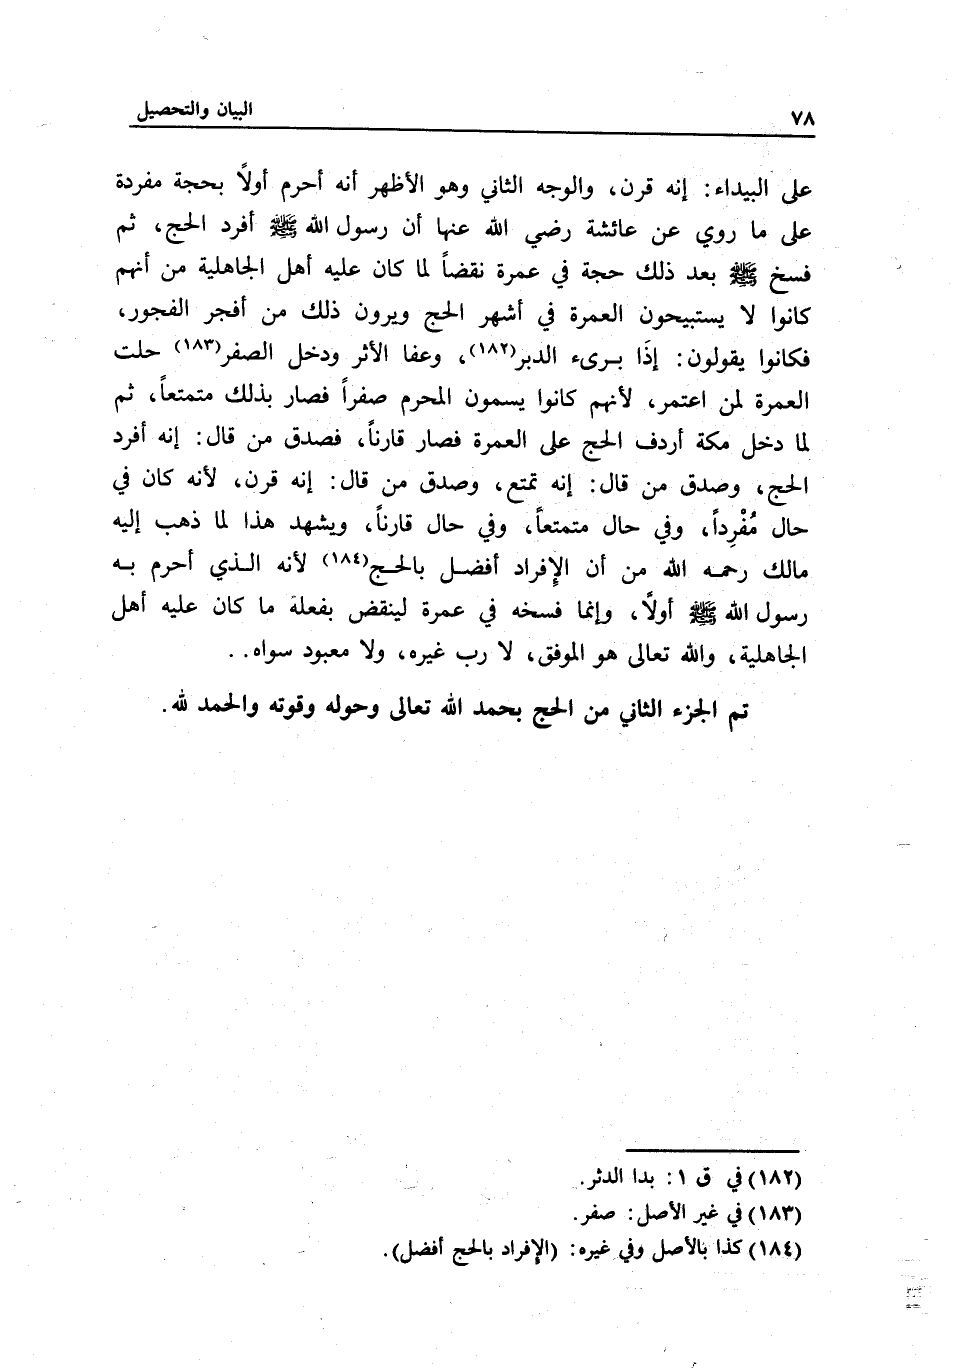 ٧٨
البيان والتحصيل
على البيداء: إنه قرن، والوجه الثاني وهو الأظهر أنه أحرم أولاً بحجة مفردة
على ما روي عن عائشة رضي الله عنها أن رسول الله ﷺ أفرد الحج، ثم
فسخ ﷺ بعد ذلك حجة في عمرة نقضاً لما كان عليه أهل الجاهلية من أنهم
كانوا لا يستبيحون العمرة في أشهر الحج ويرون ذلك من أفجر الفجور،
فكانوا يقولون: إذَا برىء الدبر(١٨٢)، وعفا الأثر ودخل الصفر(١٨٣) حلت
العمرة لمن اعتمر، لأنهم كانوا يسمون المحرم صفراً فصار بذلك متمتعاً، ثم
لما دخل مكة أردف الحج على العمرة فصار قارناً، فصدق من قال: إنه أفرد
الحج، وصدق من قال: إنه تمتع، وصدق من قال: إنه قرن، لأنه كان في
حال مُفْرِداً، وفي حال متمتعاً، وفي حال قارناً، ويشهد هذا لما ذهب إليه
مالك رحمه الله من أن الإفراد أفضل بالحج(١٨٤) لأنه الذي أحرم به
رسول الله ﷺ أولًا، وإنما فسخه في عمرة لينقض بفعلهَ ما كان عليه أهل
الجاهلية، والله تعالى هو الموفق، لا رب غيره، ولا معبود سواه. .
تم الجزء الثاني من الحج بحمد الله تعالى وحوله وقوته والحمد لله.
(١٨٢) في ق ١: بدا الدثر.
(١٨٣) في غير الأصل: صفر.
(١٨٤) كذا بالأصل وفي غيره: (الإفراد بالحج أفضل).